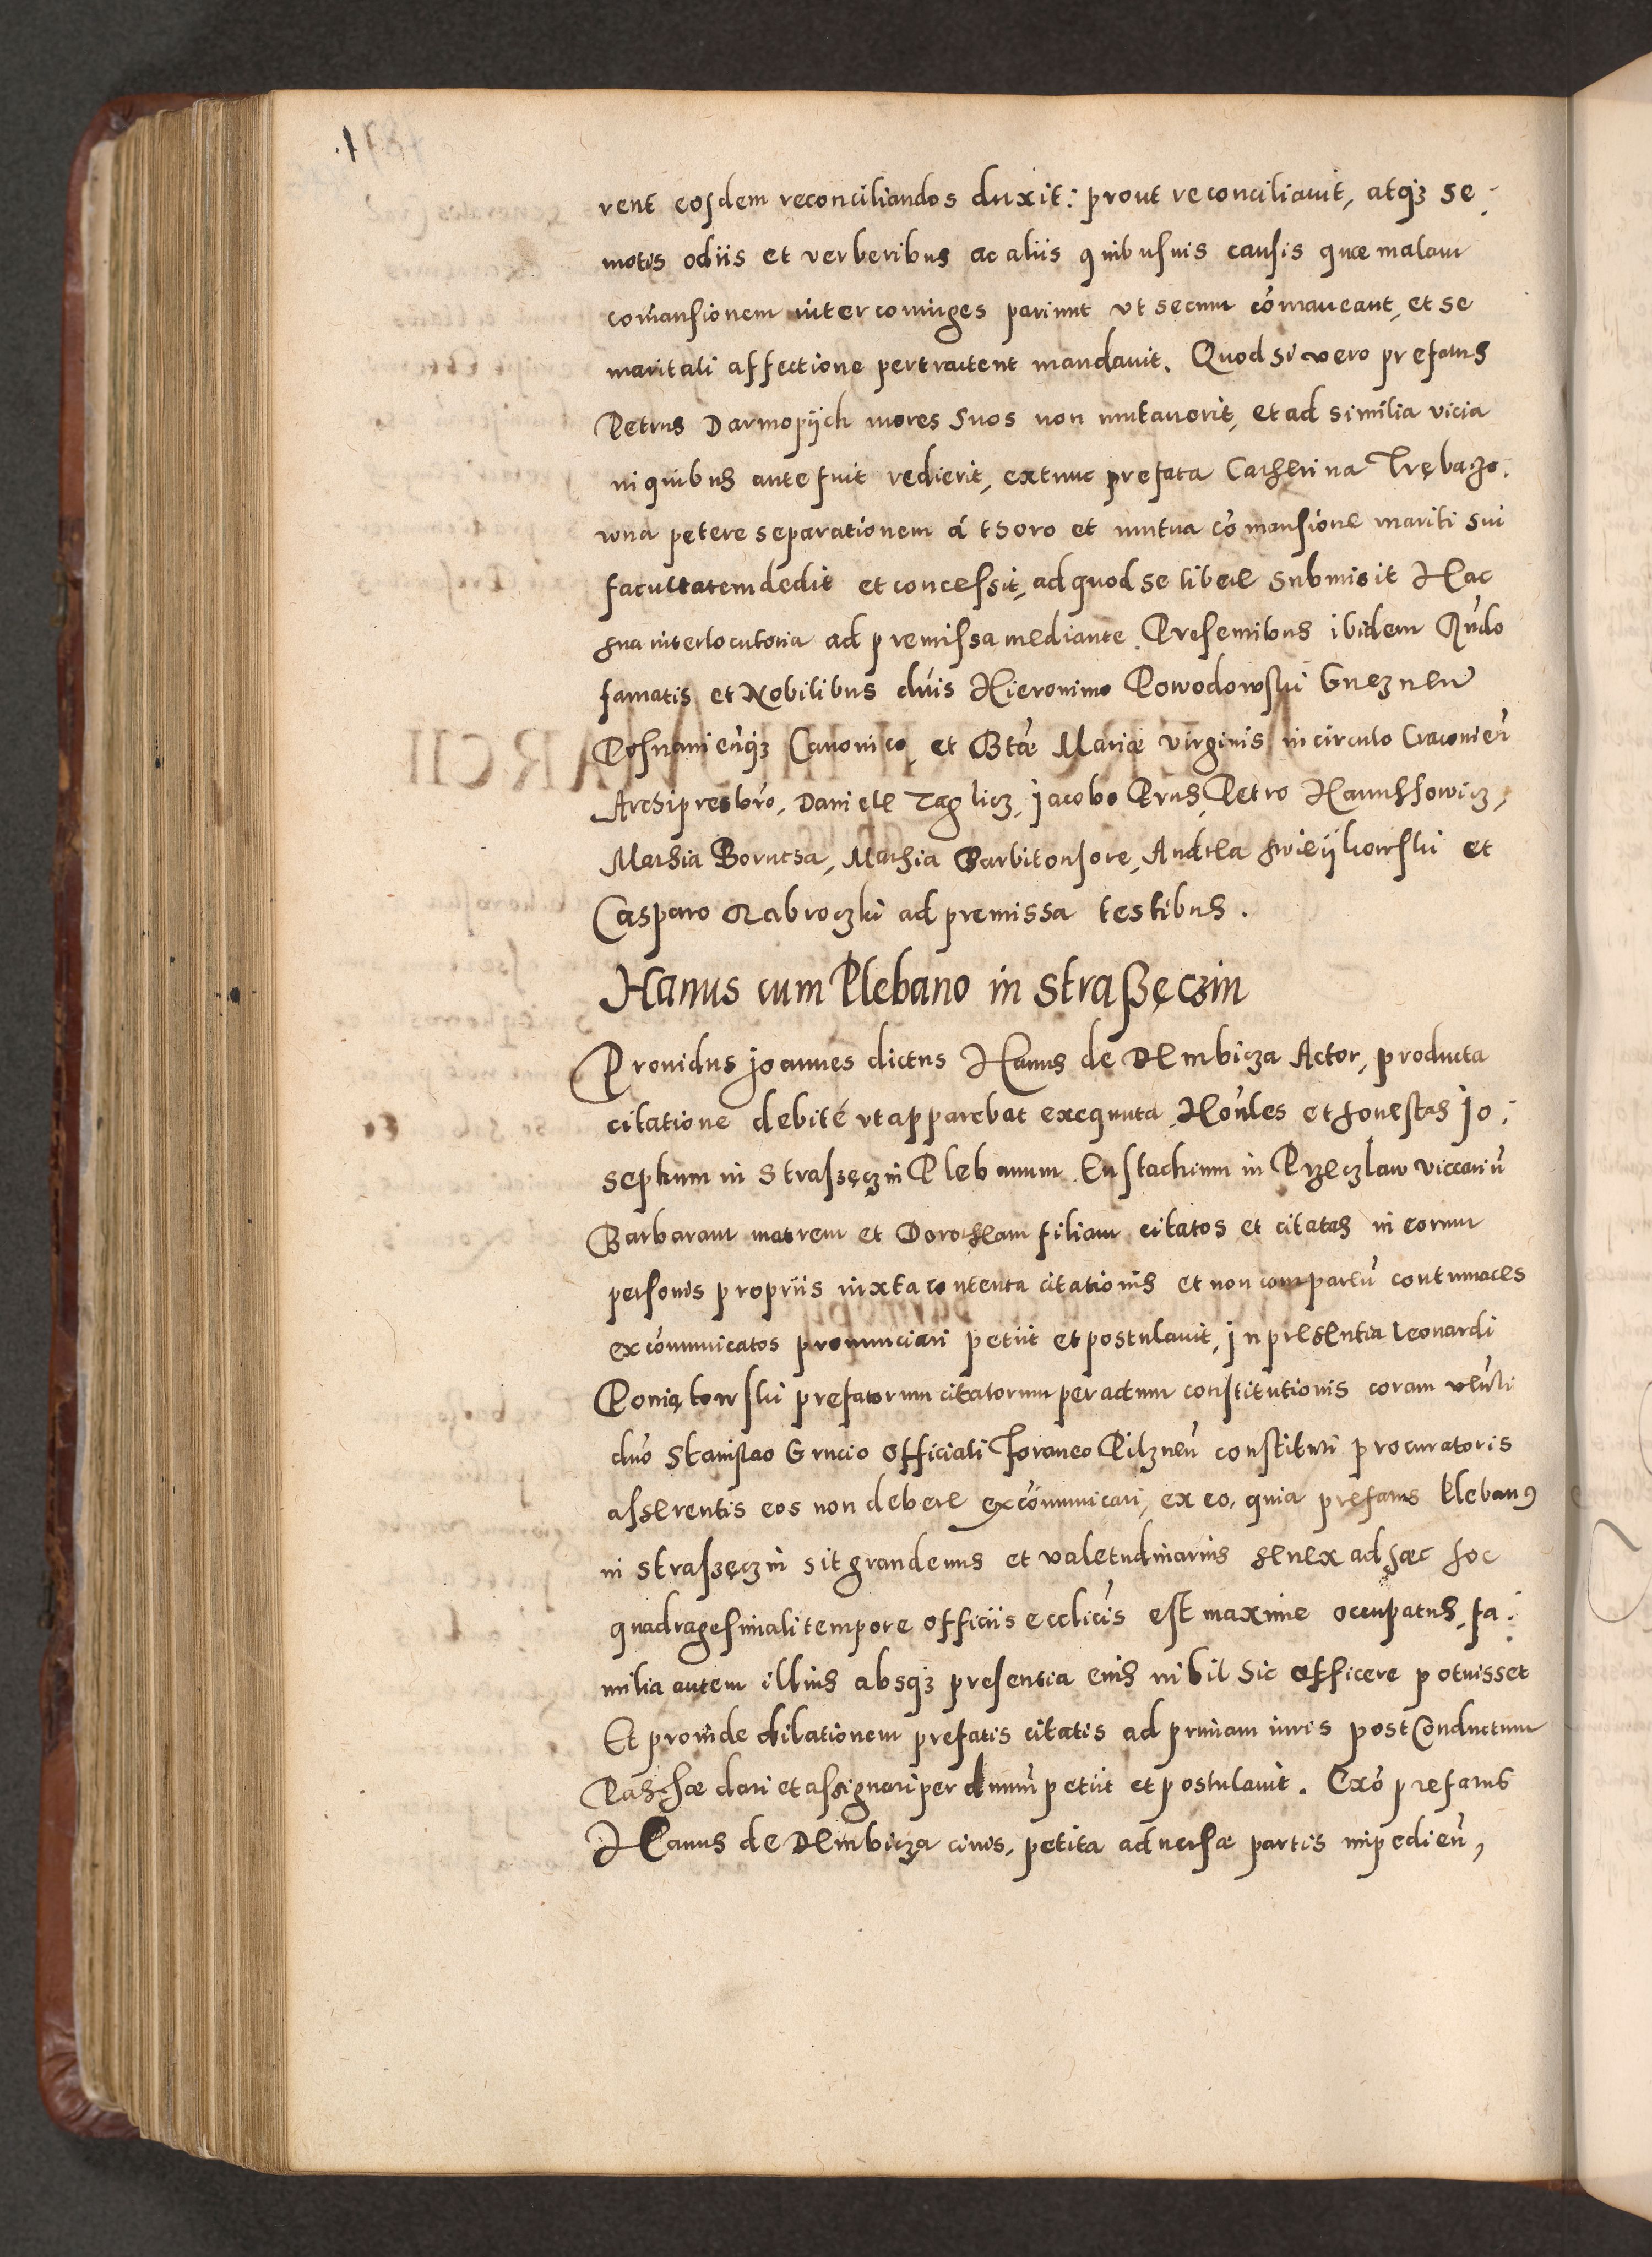 rent eosdem reconciliandos duxit: prout reconciliauit, atq₃ se-
motis odiis et verberibus ac aliis quibusuis causis quæ malam
com̄ansionem inter coniuges pariunt vt secum com̄aneant, et se
maritali affectione pertractent mandauit. Quod si vero prefatus
Petrus Darmopijch mores suos non mutauerit, et ad similia vicia
in quibus ante fuit redierit, extunc prefata Catherina Trębaczo-
wna petere separationem á thoro et mutua com̄ansione mariti sui
facultatem dedit et concessit, ad quod se libere submisit Hac
sua interlocutoria ad premissa mediante. Presentibus ibidem Rn̄do
famatis et Nobilibus dn̄is Hieronimo Powodowski Gneznen̄
Posnanien̄q₃ Canonico, et Btǣ Mariæ virginis in circulo Cracouien̄
Archipresbr̄o, Daniele Taglicz, Jacobo Prus, Petro Hanussowicz,
Mathia Borucha, Mathia Barbitonsore, Andrea Swieijkowski et
Casparo Zabroczki ad premissa testibus.
Hanus cum Plebano in Straßęczin
Prouidus Joannes dictus Hanus de Dembicza Actor, producta
citatione debité vt apparebat exequuta, Hon̄les et honestas Jo-
sephum in Straszęczin Plebanum Eustachium in Przeczlaw viccariū
Barbaram matrem et Dorotheam filiam citatos et citatas in eorum
personis propriis iuxta contenta citationis et non comparen̄ contumaces
excōmunicatos pronunciari petiit et postulauit, in presentia Leonardi
Poniętowski prefatorum citatorum per actum constitutionis coram ven̄li
dn̄o Stanislao Grucio Officiali Foraneo Pilznen̄ constituti procuratoris
asserentis eos non debere excōmunicari, ex eo, quia prefatus Plebanꝰ
in Straszęczin sit grandeuus et valetudinarius senex ad hæc hoc
quadragesimali tempore officiis ecclicīs est maxime occupatus, fa-
milia autem illius absq₃ presentia eius nihil sic efficere potuisset
Et proinde dilationem prefatis citatis ad primam iuris post Conductum
Paschæ dari et assignari per dnum̄ petiit et postulauit. Exō prefatus
Hanus de Dembicza ciuis, petita aduersæ partis impedien̄,